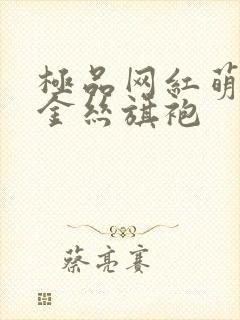 極品网紅萌
金丝旗袍
蔡亮赛